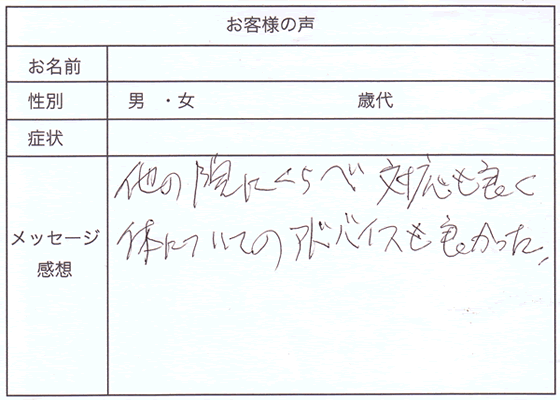 お客様の声
お名前
性別 男 ・女 歳代
症状
メッセージ
感想
他の院にくらべ 対応も良く
体についてのアドバイスも良かった。